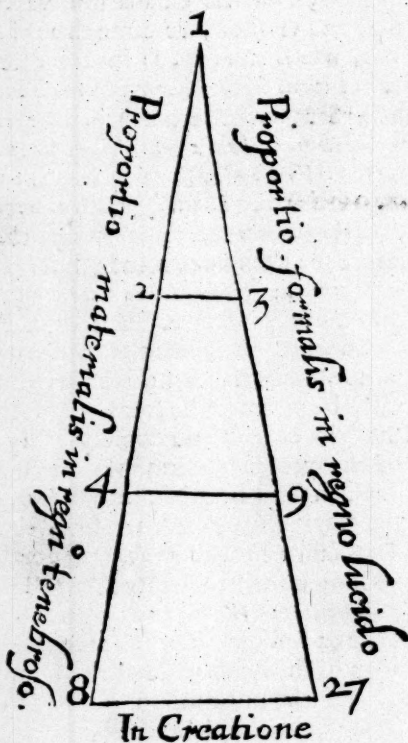 1
Proportio materialis in regno tenebroso.
Proportio formalis in regno lucido
2 3
4 9
8 27
In Creatione